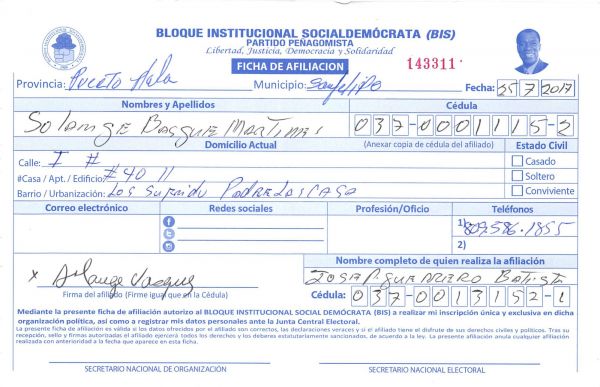 BLOQUE INSTITUCIONAL SOCIALDEMÓCRATA (BIS)
PARTIDO PEÑAGOMISTA
Libertad, Justicia, Democracia y Solidaridad
FICHA DE AFILIACION 143311
Provincia: Puerto Plata Municipio: San Felipe Fecha: 25 7 2017
Nombres y Apellidos Cédula
Solange Basque Martines 037-0001115-2
Domicilio Actual (Anexar copia de cédula del afiliado) Estado Civil
Calle: I # Casado
#Casa / Apt. / Edificio: #40 11 Soltero
Barrio / Urbanización: Los Conviviente
Correo electrónico Redes sociales Profesión/Oficio Teléfonos
1) 809.586.1855
2)
Nombre completo de quien realiza la afiliación
x Solange Vasquez Jose A. Guerrero Batista
Firma del afiliado (Firme igual que en la Cédula) Cédula: 037-0013152-1
Mediante la presente ficha de afiliación autorizo al BLOQUE INSTITUCIONAL SOCIAL DEMÓCRATA (BIS) a realizar mi inscripción única y exclusiva en dicha
organización política, así como a registrar mis datos personales ante la Junta Central Electoral.
La presente ficha de afiliación es válida si los datos ofrecidos por el afiliado son correctos, las declaraciones veraces y si el afiliado tiene el disfrute de sus derechos civiles y políticos. Tras su
recepción, sello y firmas autorizadas el afiliado ejercerá todos los derechos y los deberes estatutariamente sancionados, de acuerdo a la ley. La presente afiliación anula cualquier afiliación
realizada con anterioridad a la fecha que aparece en esta ficha.
SECRETARIO NACIONAL DE ORGANIZACIÓN SECRETARIO NACIONAL ELECTORAL